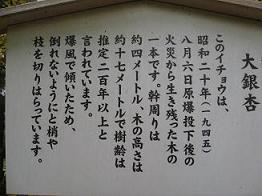 大銀杏
このイチョウは、
昭和二十年(一九四五)
八月六日原爆投下後の
火災から生き残った木の
一本です。幹周りは
約四メートル、木の高さは
約十七メートルで樹齢は
推定二百年以上と
言われています。
爆風で傾いたため、
倒れないようにと梢や
枝を切りはらっています。